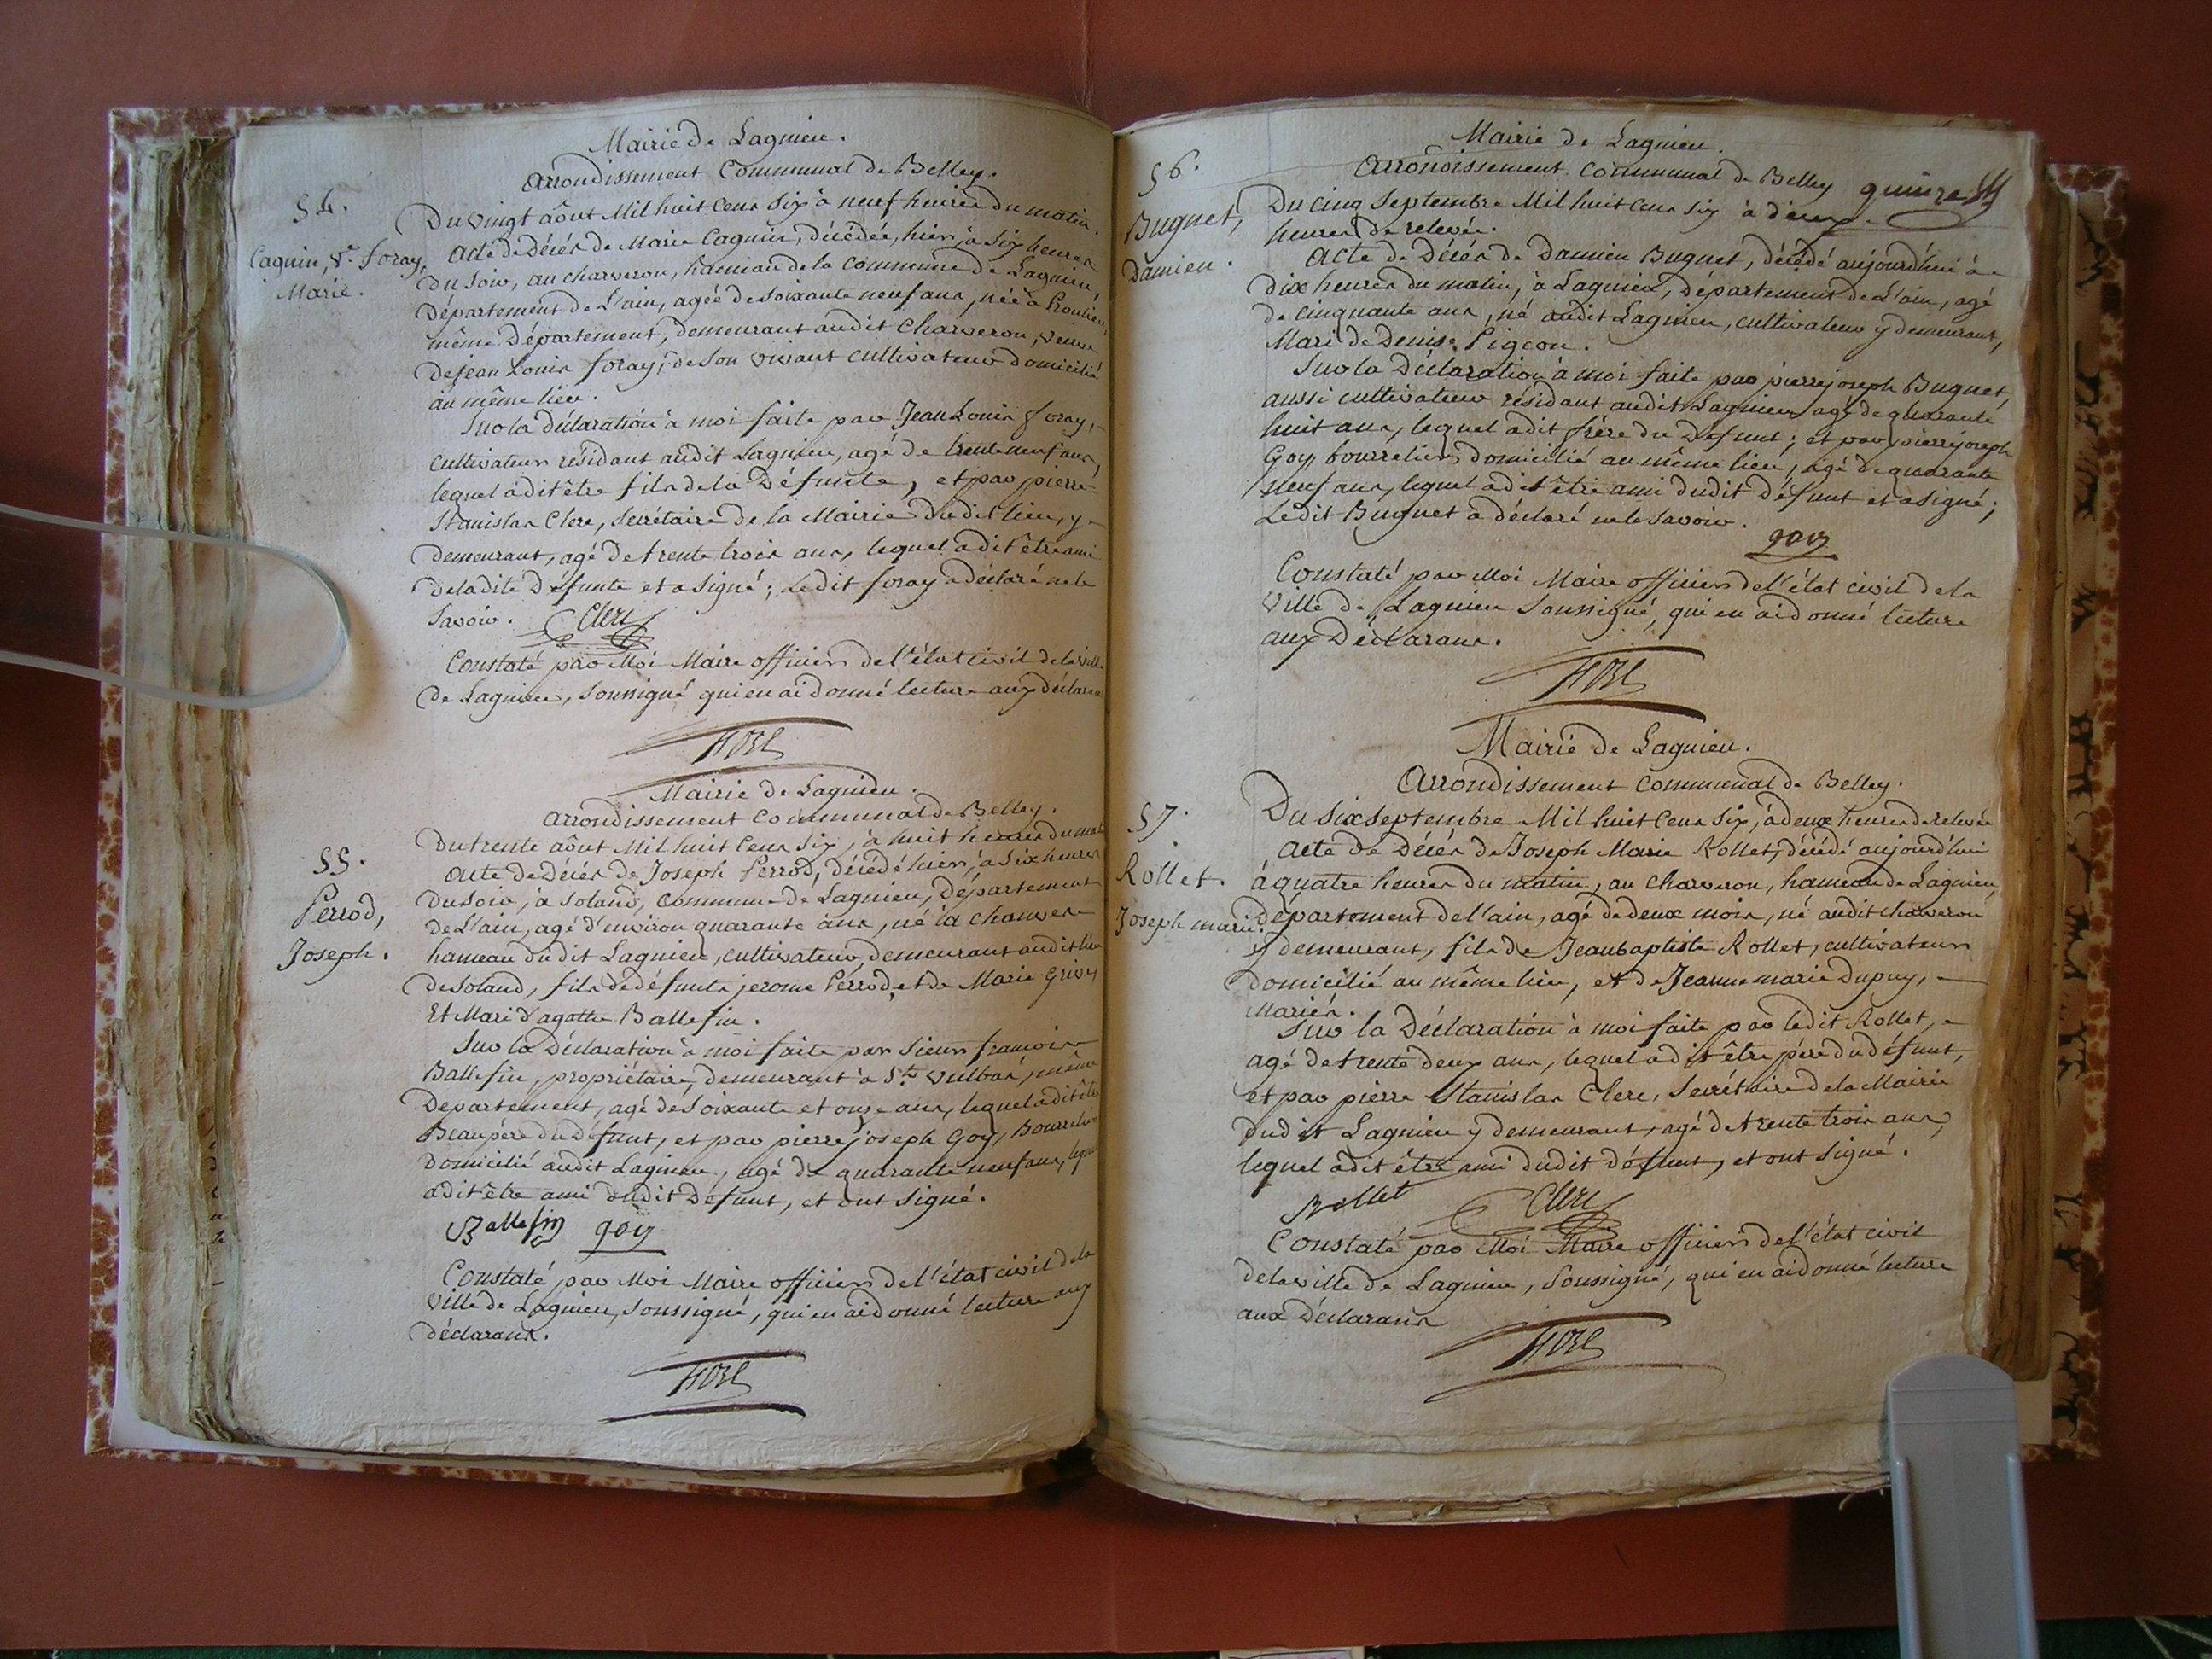 Mairie de Lagnieu.
Arrondissement Communal de Belley.
54.
Caquin, Ve foray,
Marie.
Du vingt aôut Mil huit cens six à neuf heures du matin.
Acte de Décès de Marie Caquin, décédée, hier, à six heures
du soir, au charveron, hameau de la Commune de Lagnieu,
Département de L'ain, agée de soixante neuf ans, née à
même Département, demeurant audit Charveron, veuve
de jean Louis foray, de son vivant cultivateur domicilié
au même lieu.
Sur la déclaration à moi faite par Jean Louis foray,
cultivateur résidant audit Lagnieu, agé de trente neuf ans,
lequel a dit être fils de la Défunte, et par pierre-
Stanislas Clerc, secrétaire de la Mairie dudit lieu, y
demeurant, agé de trente trois ans, lequel a dit être ami
de ladite Défunte et a signé; Ledit foray a déclaré ne le
savoir. Clerc
Constaté par Moi Maire officier de l'état civil de la ville
de Lagnieu, soussigné qui en ai donné lecture aux déclarans
Mairie de Lagnieu.
Arrondissement communal de Belley.
55.
Perrod,
Joseph.
Du trente aôut Mil huit Cens six, à huit heures du mat
Acte de Décès de Joseph Perrod, décédé hier, à six heures
du soir, à soland, Commune de Lagnieu, Département
de L'ain, agé d'environ quarante ans, né à
hameau dudit Lagnieu, cultivateur, demeurant audit lieu
de soland, fils de défunts jerome Perrod, et de Marie
Et Mari d'agathe Ballefin.
Sur la Déclaration à moi faite par sieur francois
Ballefin, propriétaire, demeurant à St. vulbas, même
Departement, agé de soixante et onze ans, lequel a dit être
Beaupère du Défunt, et par pierre joseph Goy, Bourrelier
domicilié audit Lagnieu, agé de quarante neuf ans, lequel
a dit être ami dudit Défunt, et ont signé.
Ballefin goy
Constaté par Moi Maire officier de l'état civil de la
ville de Lagnieu, soussigné, qui en ai donné lecture aux
déclarans.
Mairie de Lagnieu.
Arrondissement Communal de Belley quinze
56.
Buguet,
Damien.
Du cinq Septembre Mil huit cens six à deux
heures de relevée.
Acte de Décès de Damien Buguet, décédé aujourdhui à
dix heures du matin, à Lagnieu, Département de L'ain, agé
de cinquante ans, né audit Lagnieu, cultivateur y demeurant,
Mari de Denise Pigeon.
Sur la Déclaration à moi faite par pierre joseph Buguet,
aussi cultivateur résidant audit Lagnieu agé de quarante
huit ans, lequel a dit frère du Défunt; et par pierre joseph
Goy bourrelier domicilié au même lieu, agé de quarante
neuf ans, lequel a dit être ami dudit Défunt et a signé;
Ledit Buguet a déclaré ne le savoir.
goy
Constaté par Moi Maire officier de l'état civil de la
ville de Lagnieu soussigné, qui en ai donné lecture
aux Déclarans.
Mairie de Lagnieu.
Arrondissement communal de Belley.
57.
Rollet.
Joseph marie.
Du six septembre Mil huit cens six, à deux heures de relevée
Acte de Décès de Joseph Marie Rollet, décédé aujourd'hui
à quatre heures du matin, au charveron, hameau de Lagnieu,
Département de l'ain, agé de deux mois, né audit charveron
y demeurant, fils de Jean baptiste Rollet, cultivateur
domicilié au même lieu, et de Jeanne marie Dupuy,
Mariés.
Sur la Déclaration à moi faite par ledit Rollet,
agé de trente deux ans, lequel a dit être père du défunt,
et par pierre Stanislas Clerc, secrétaire de la Mairie
dudit Lagnieu y demeurant, agé de trente trois ans,
lequel a dit être ami dudit défunt, et ont signé.
Rollet Clerc
Constaté par Moi Maire officier de l'état civil
de la ville de Lagnieu, soussigné, qui en ai donné lecture
aux Déclarans